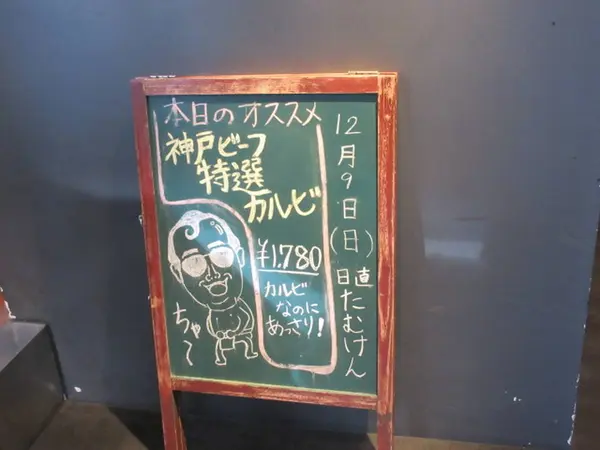 本日のオススメ
神戸ビーフ
特選
カルビ
¥1,780
カルビ
なのに
あっさり!
ちゃ〜
12月9日(日)
日直
たむけん